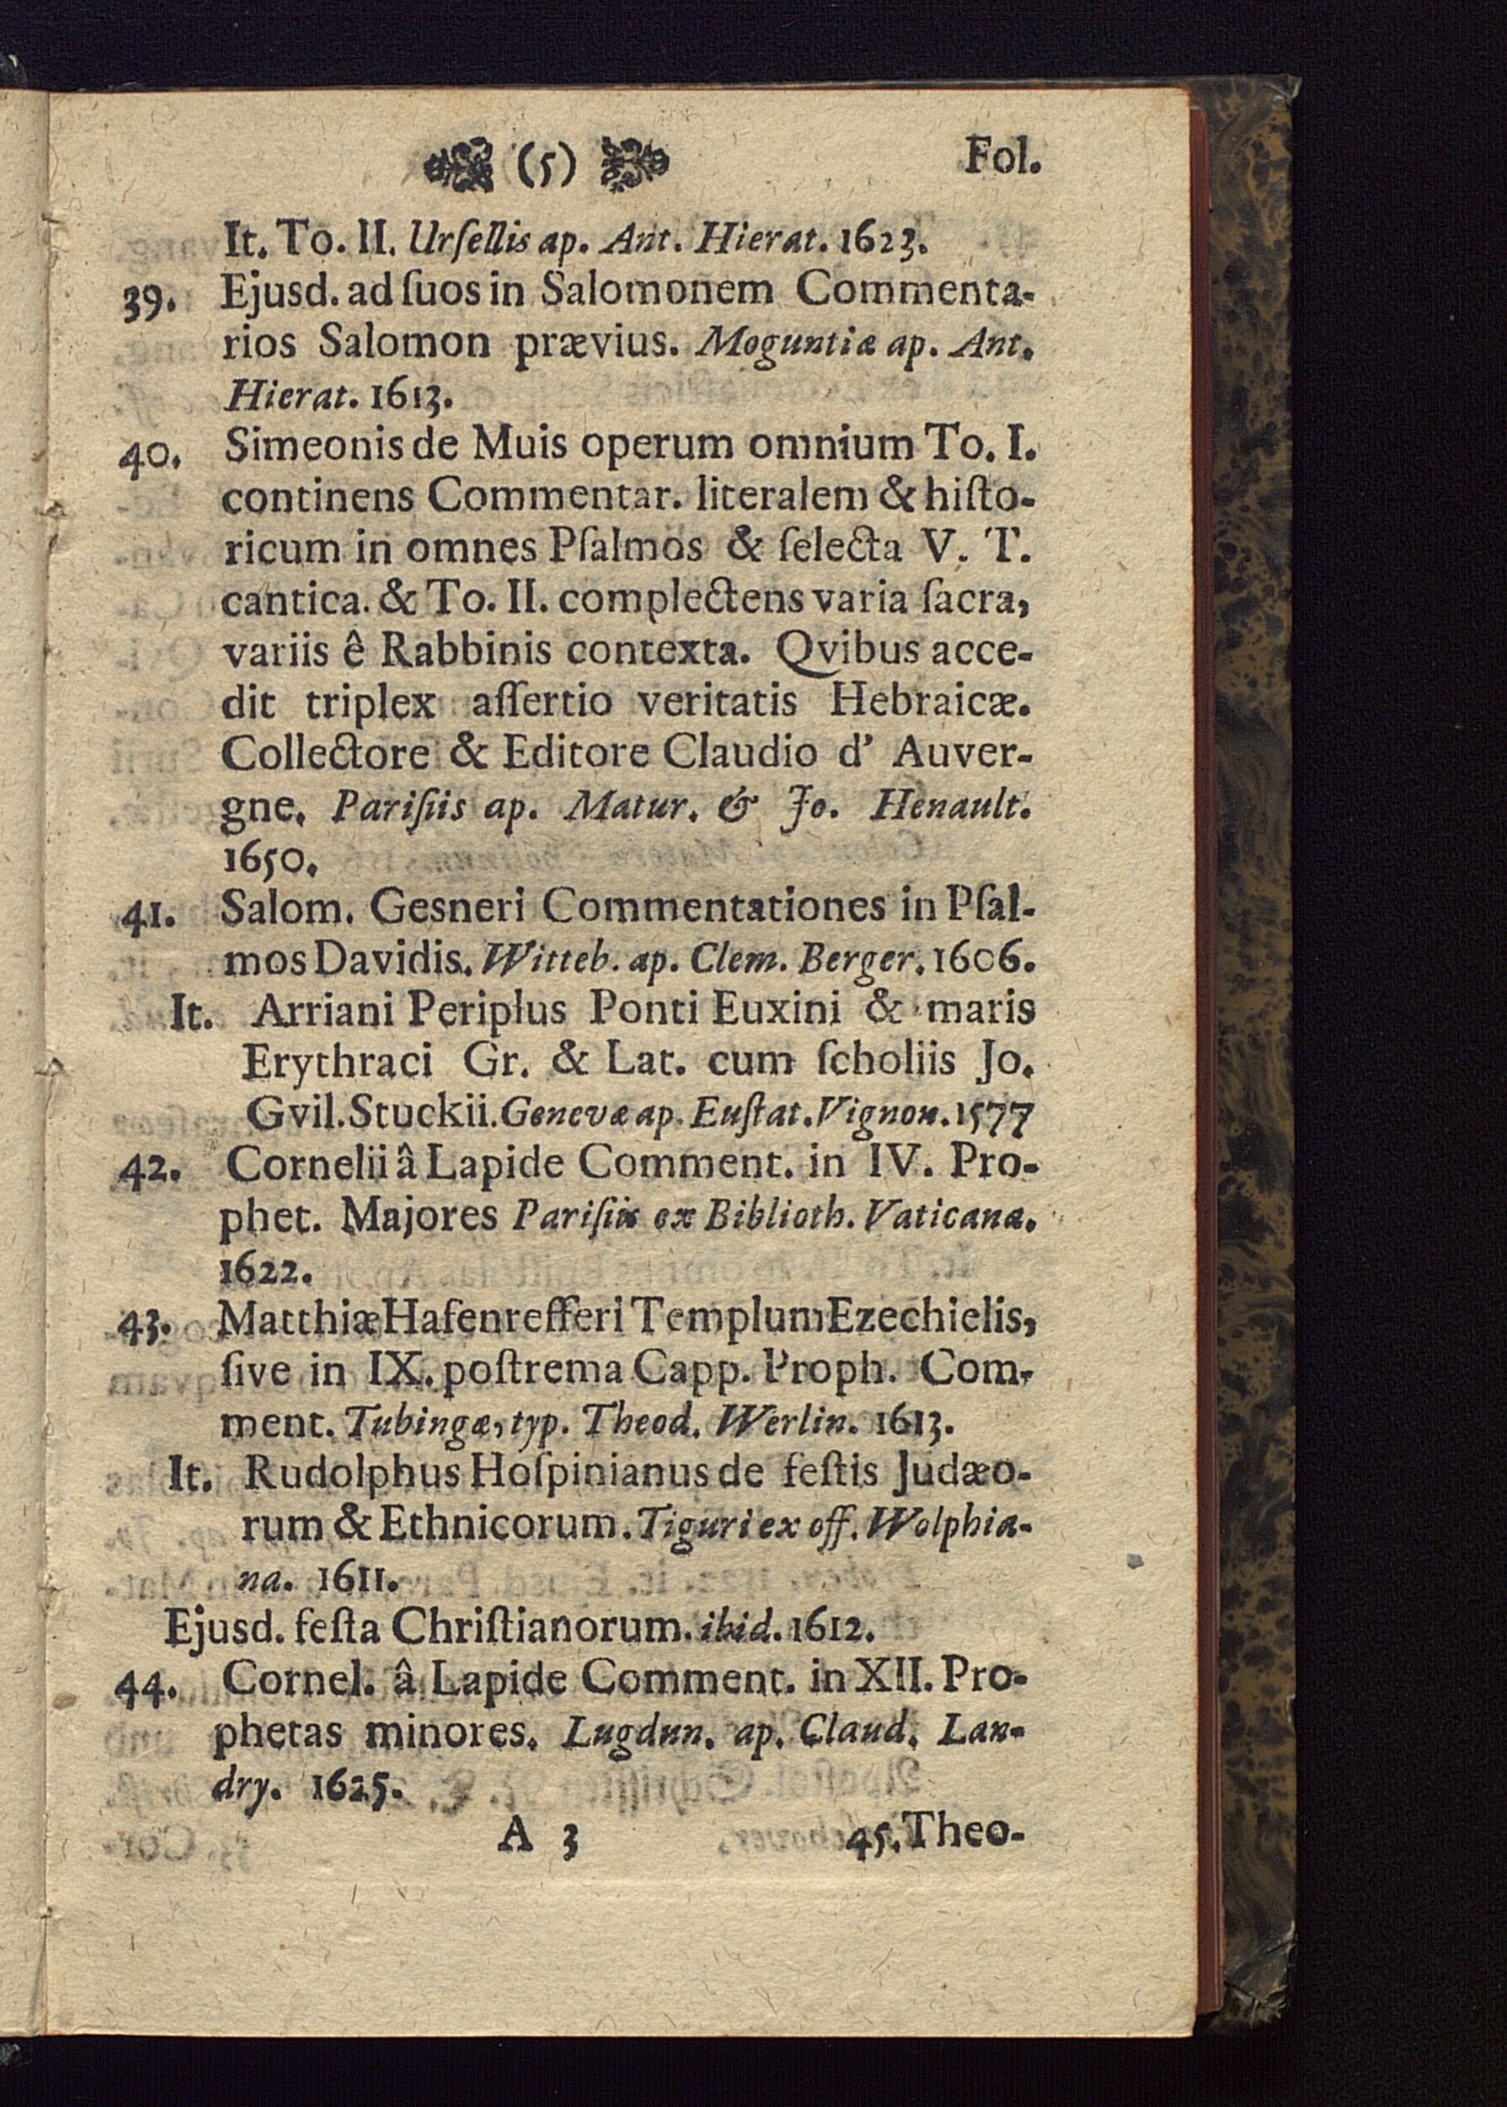 (5) Fol.
It. To. II. Urſellis ap. Ant. Hierat. 1623.
39. Ejusd. ad ſuos in Salomonem Commenta-
rios Salomon prævius. Moguntiæ ap. Ant.
Hierat. 1613.
40. Simeonis de Muis operum omnium To. I.
continens Commentar. literalem & hiſto-
ricum in omnes Pſalmos & ſelecta V. T.
cantica. & To. II. complectens varia ſacra,
variis ê Rabbinis contexta. Qvibus acce-
dit triplex aſſertio veritatis Hebraicæ.
Collectore & Editore Claudio d' Auver-
gne. Pariſiis ap. Matur. & Jo. Henault.
1650.
41. Salom. Gesneri Commentationes in Pſal-
mos Davidis. Witteb. ap. Clem. Berger. 1606.
It. Arriani Periplus Ponti Euxini & maris
Erythraci Gr. & Lat. cum ſcholiis Jo.
Gvil. Stuckii. Genevæ ap. Euſtat. Vignon. 1577
42. Cornelii â Lapide Comment. in IV. Pro-
phet. Majores Pariſiis ex Biblioth. Vaticana.
1622.
43. Matthiæ Hafenrefferi Templum Ezechielis,
ſive in IX. poſtrema Capp. Proph. Com-
ment. Tubingæ, typ. Theod. Werlin. 1613.
It. Rudolphus Hoſpinianus de feſtis Judæo-
rum & Ethnicorum. Tiguri ex off. Wolphia-
na. 1611.
Ejusd. feſta Chriſtianorum. ibid. 1612.
44. Cornel. â Lapide Comment. in XII. Pro-
phetas minores. Lugdun. ap. Claud. Lan-
dry. 1625.
A 3 45. Theo-